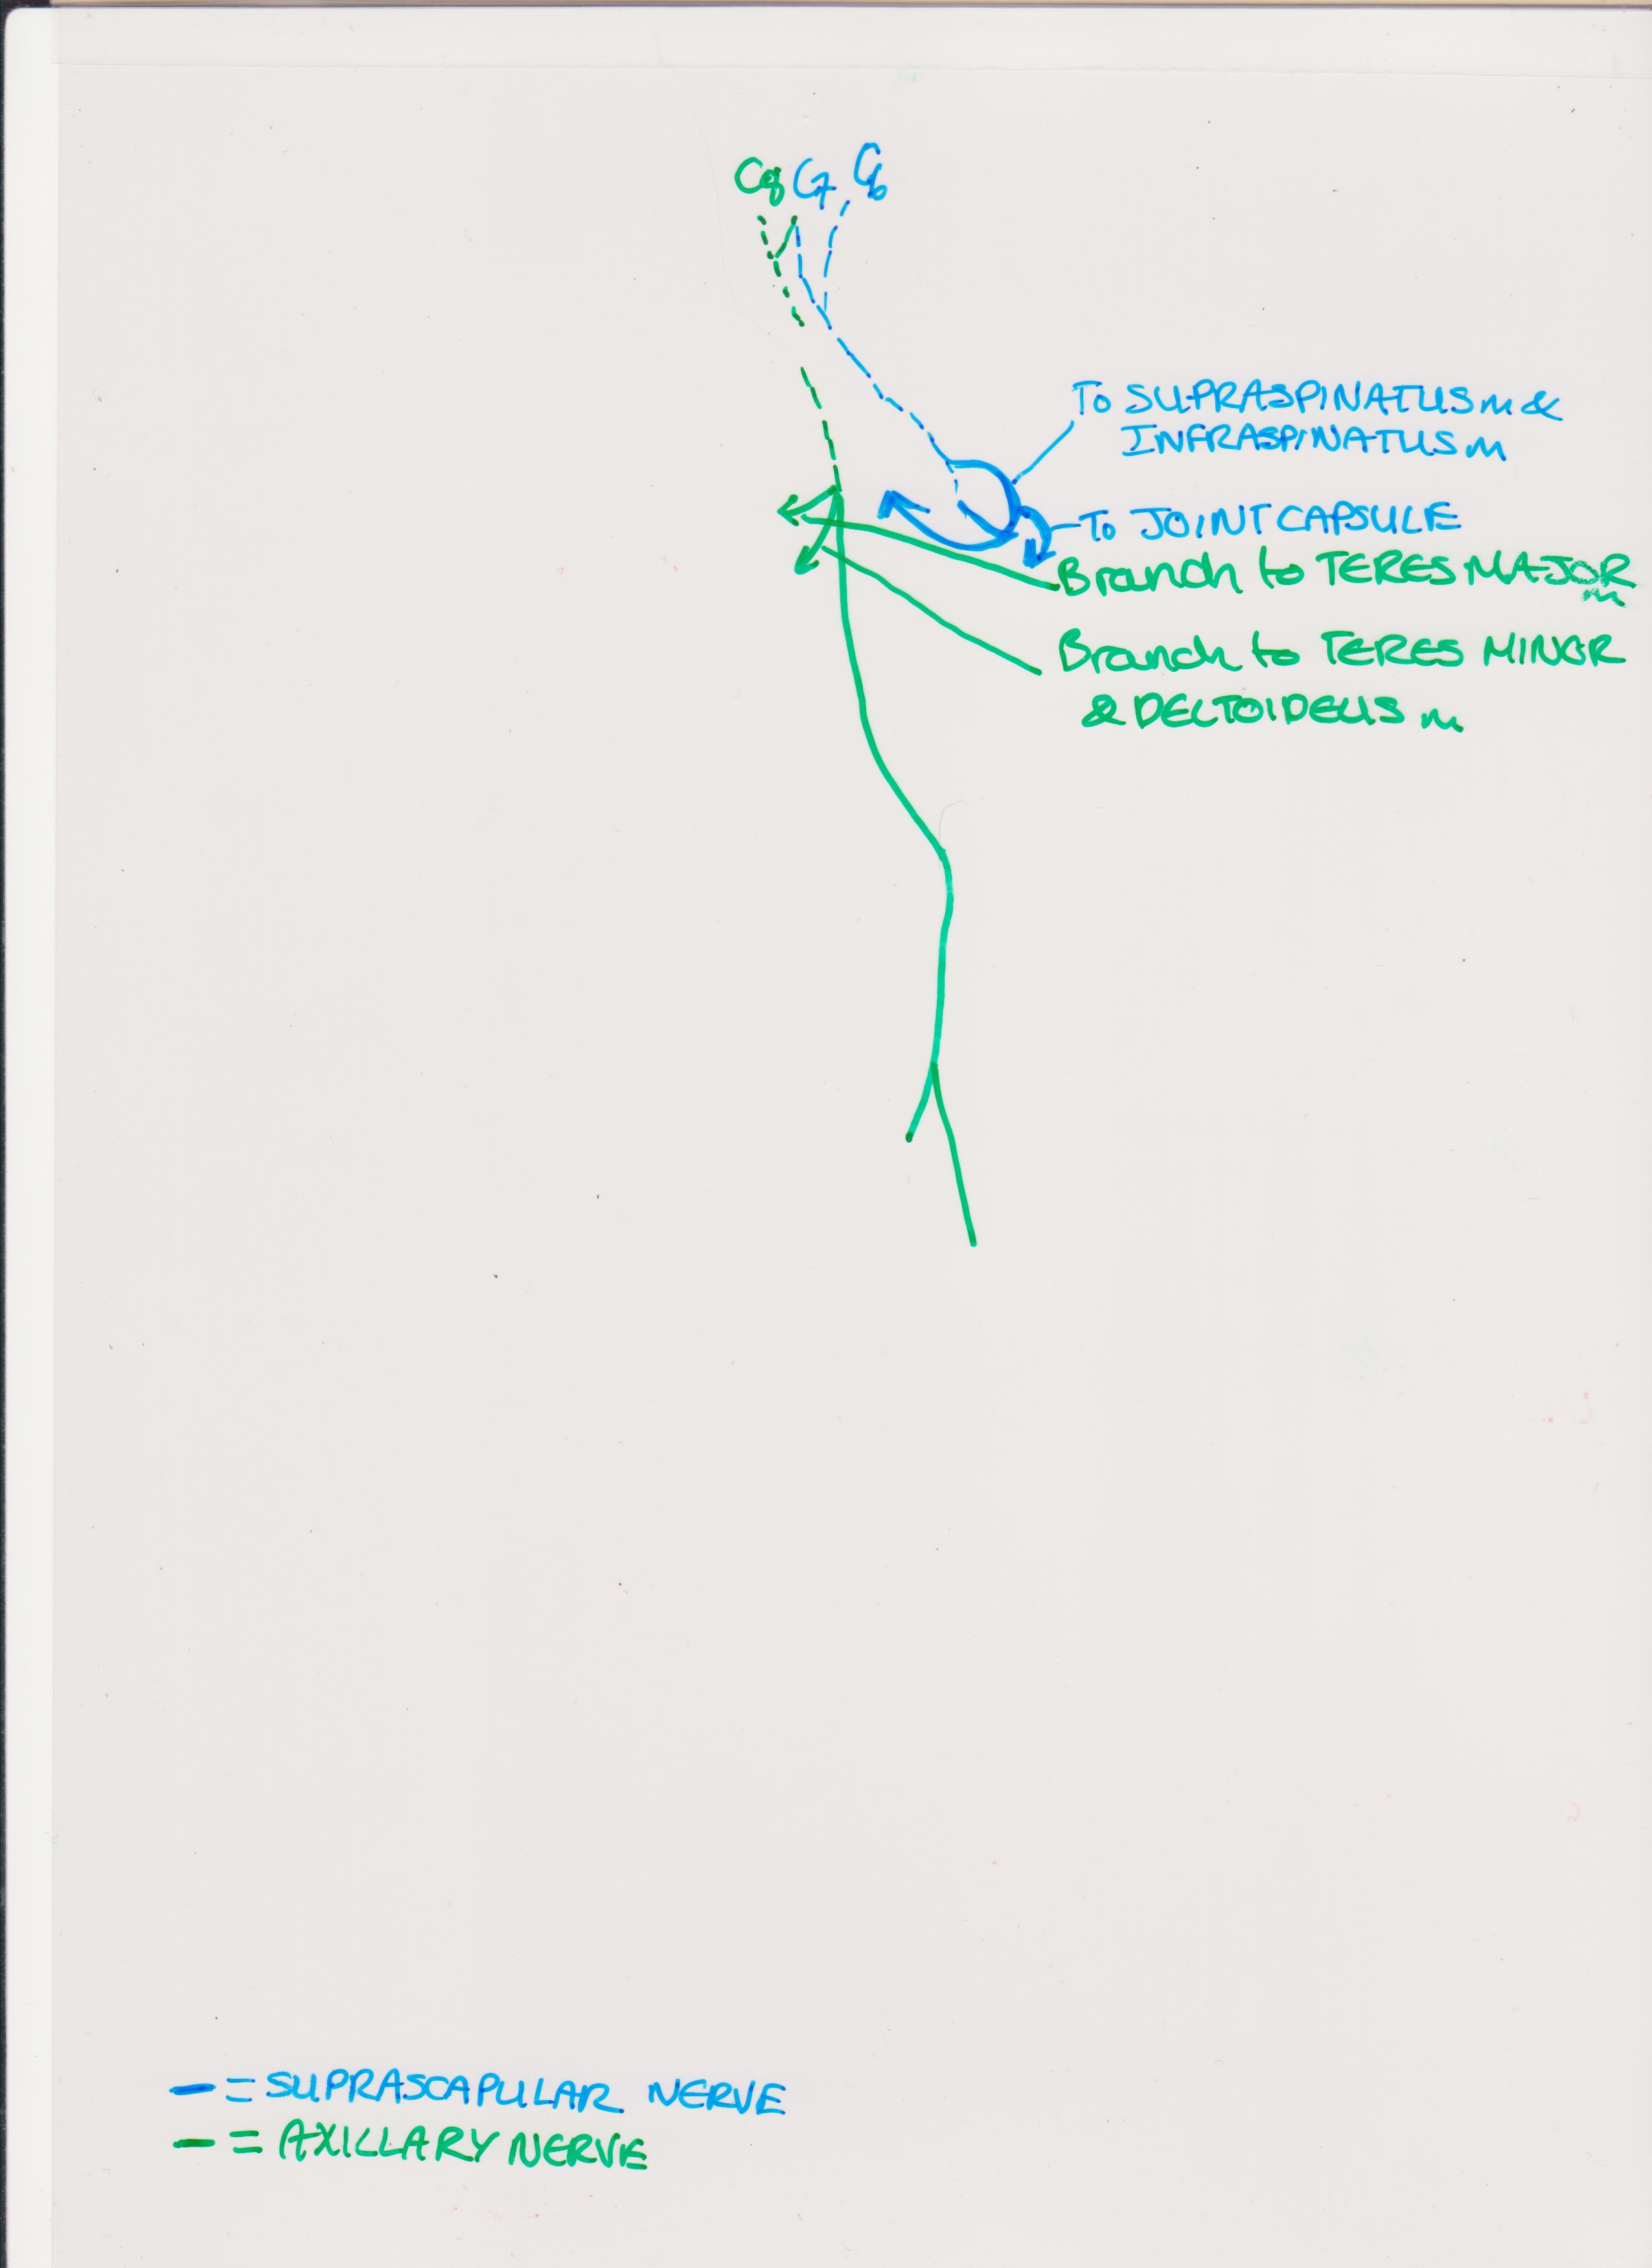 C8 C7 C6
To SUPRASPINATUS m &
INFRASPINATUS m
To JOINT CAPSULE
Branch to TERES MAJOR
m
Branch to TERES MINOR
& DELTOIDEUS m
— = SUPRASCAPULAR NERVE
— = AXILLARY NERVE